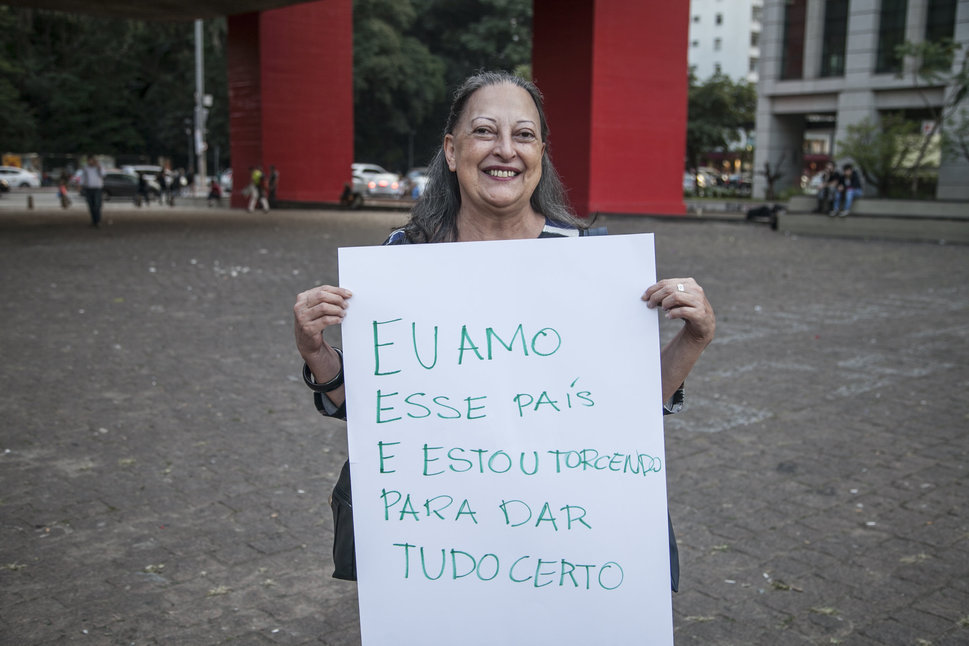 EU AMO
ESSE PAÍS
E ESTOU TORCENDO
PARA DAR
TUDO CERTO